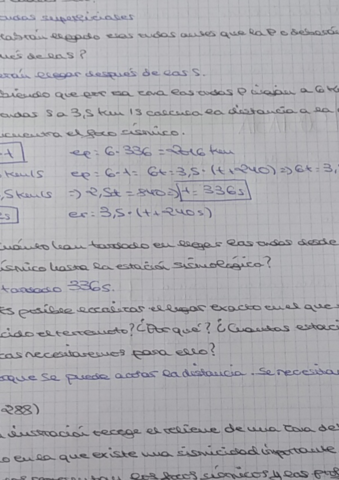 ondas superficiales
habrán llegado esas ondas antes que la P o
ués de las S?
arán llegar después de las S.
biendo que por esa zona las ondas P viajan a 6 k
ondas S a 3,5 km/s calcula la distancia a la
encuentra el foco sísmico.
ep: 6·336 = 2016 km
km/s ep: 6·t = 6t = 3,5·(t+240) => 6t = 3,
,5 km/s => 2,5t = 840 => t = 336s
es: 3,5·(t+240s)
uánto han tardado en llegar las ondas desde
ísmico hasta la estación sismológica?
tardado 336s.
Es posible localizar el lugar exacto en el que
cido el terremoto? ¿Por qué? ¿Cuantas estaci
cas necesitaremos para ello?
rque se puede acotar la distancia. Se necesita
288)
ilustración recoge el relieve de una zona de
o en la que existe una sismicidad importante
los focos sísmicos y las